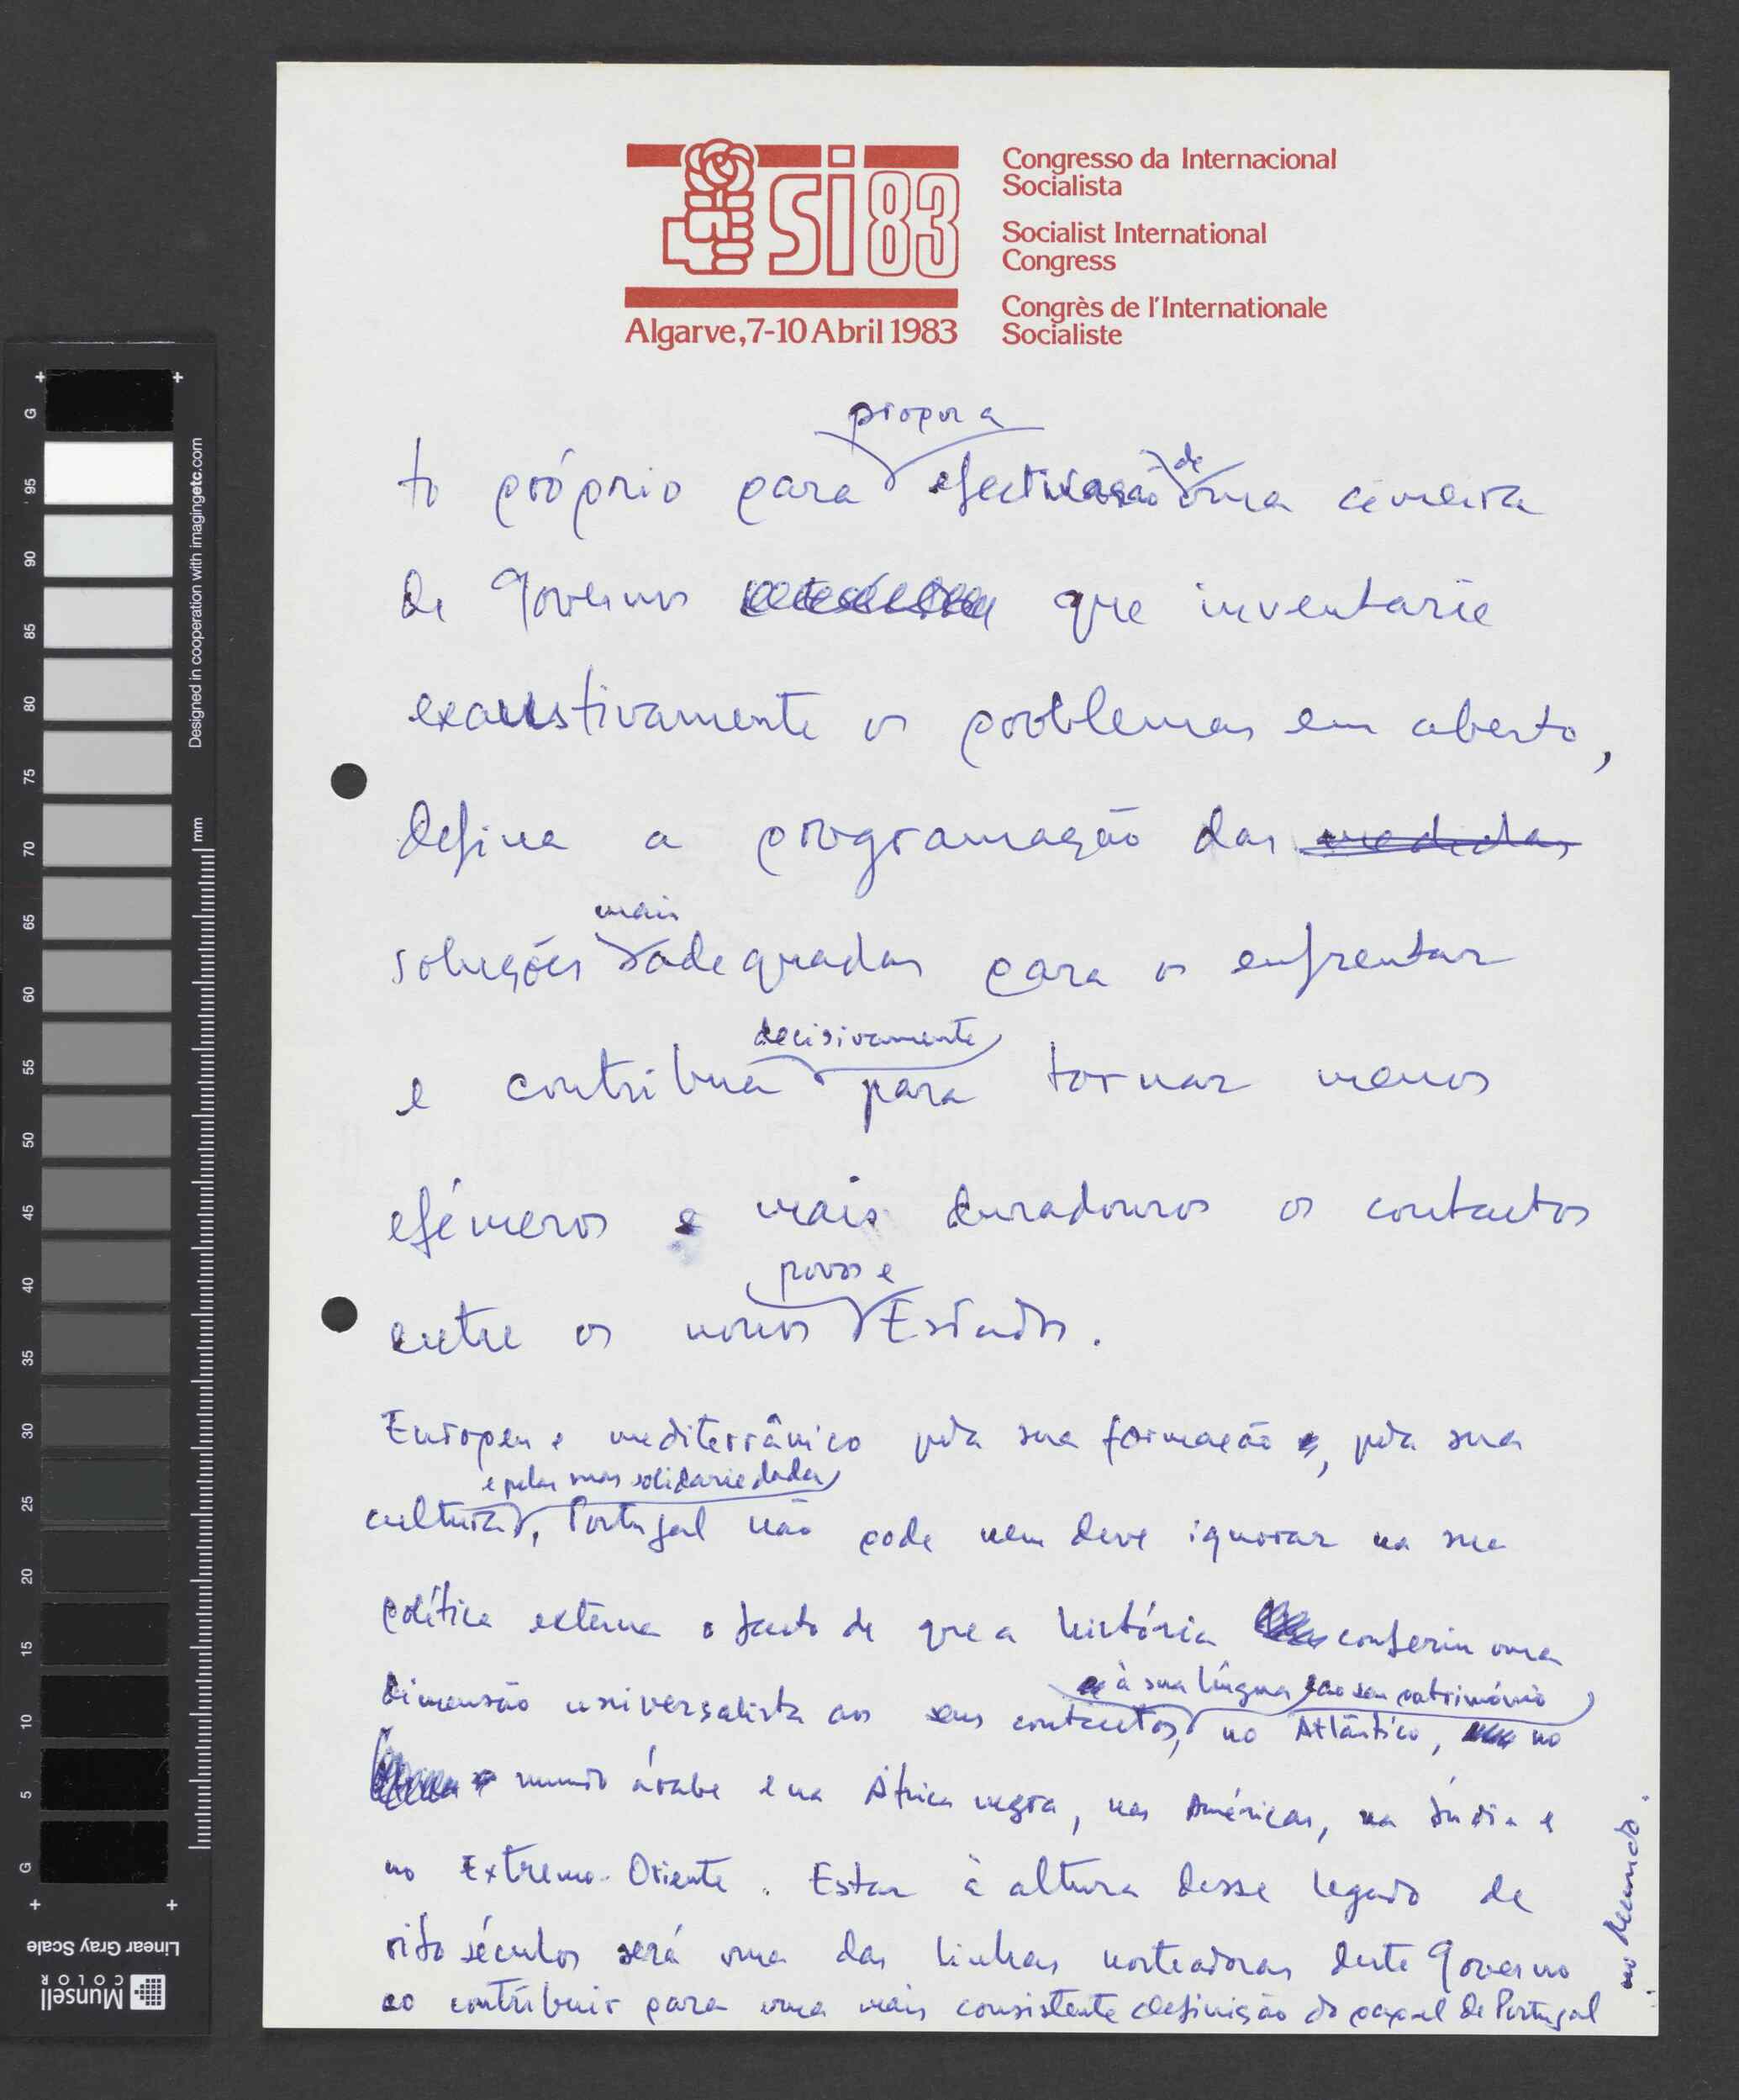 si 83
Algarve, 7-10 Abril 1983
Congresso da Internacional
Socialista
Socialist International
Congress
Congrès de l'Internationale
Socialiste
propor a
to próprio para efectivação de uma cimeira
de Governos que inventarie
exaustivamente os problemas em aberto,
defina a programação das medidas
mais
soluções adequadas para os enfrentar
decisivamente
e contribua para tornar menos
efémeros e mais duradouros os contactos
povos e
entre os novos Estados.
Europeu e mediterrânico pela sua formação, pela sua
e pelas suas solidariedades
cultura, Portugal não pode nem deve ignorar na sua
política externa o facto de que a história conferiu uma
à sua língua e ao seu património
dimensão universalista aos seus contactos, no Atlântico, no
mundo árabe e na África negra, nas Américas, na Índia e
no Extremo-Oriente. Estar à altura desse legado de
oito séculos será uma das linhas norteadoras deste Governo
ao contribuir para uma mais consistente definição do papel de Portugal
no Mundo.
Designed in cooperation with imagingetc.com
mm
G
95
90
85
80
75
70
65
60
55
50
45
40
35
30
25
20
15
10
5
G
Linear Gray Scale
Munsell
COLOR